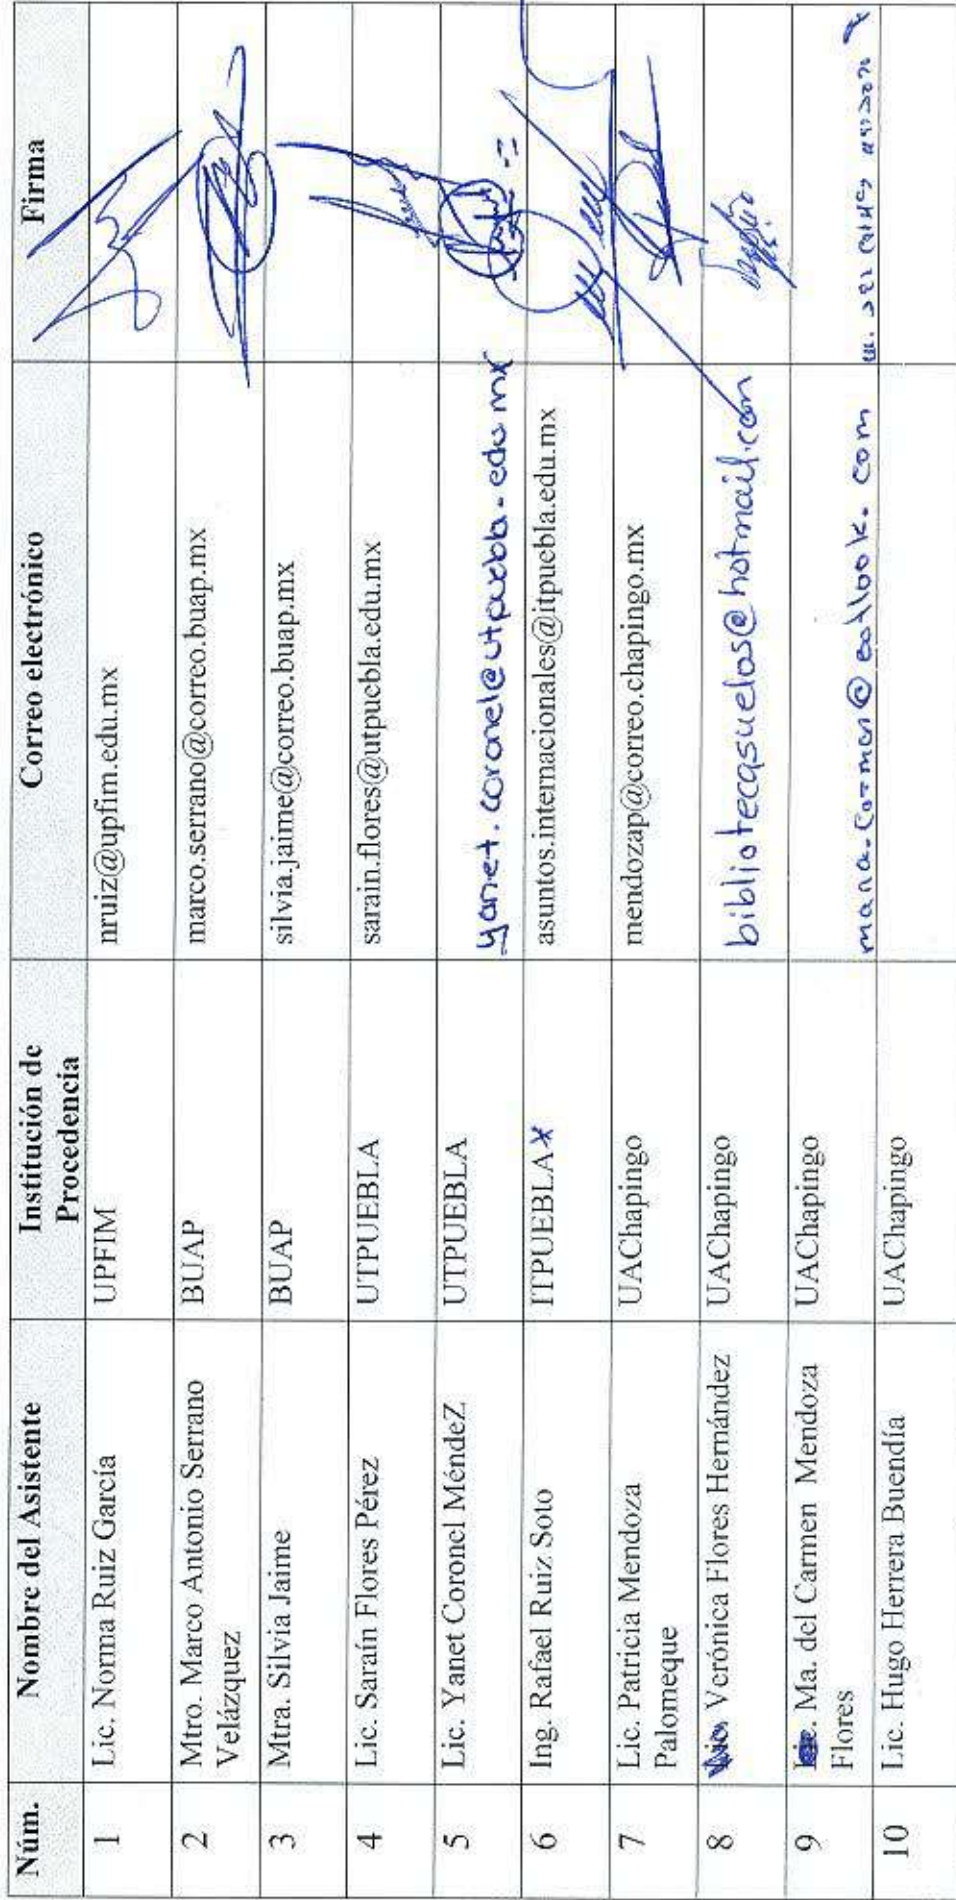 Núm. Nombre del Asistente Institución de Procedencia Correo electrónico Firma
1 Lic. Norma Ruiz García UPFIM nruiz@upfim.edu.mx
2 Mtro. Marco Antonio Serrano Velázquez BUAP marco.serrano@correo.buap.mx
3 Mtra. Silvia Jaime BUAP silvia.jaime@correo.buap.mx
4 Lic. Sarán Flores Pérez UTPUEBLA sarain.flores@utpuebla.edu.mx
5 Lic. Yanet Coronel MéndeZ UTPUEBLA yanet.coronel@utpuebla.edu.mx
6 Ing. Rafael Ruiz Soto ITPUEBLA asuntos.internacionales@itpuebla.edu.mx
7 Lic. Patricia Mendoza Palomeque UAChapingo mendozap@correo.chapingo.mx
8 Verónica Flores Hernández UAChapingo bibliotecasuelos@hotmail.com
9 Ma. del Carmen Mendoza Flores UAChapingo
10 Lic. Hugo Herrera Buendía UAChapingo